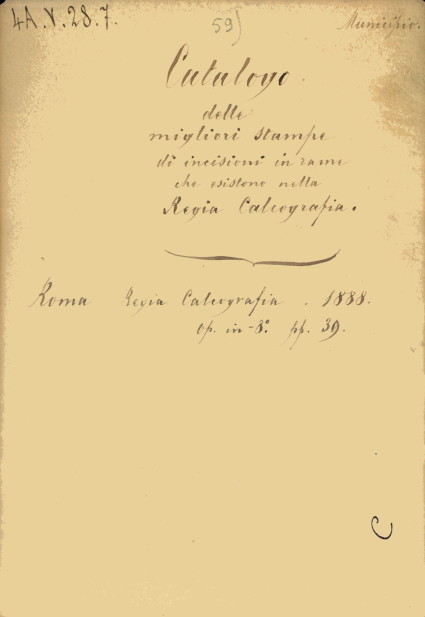 4A.V.28.7.
59)
Municipio.
Catalogo
delle
migliori stampe
di incisioni in rame
che esistono nella
Regia Calcografia.
Roma Regia Calcografia. 1888.
op. in-8.° pp. 39.
C